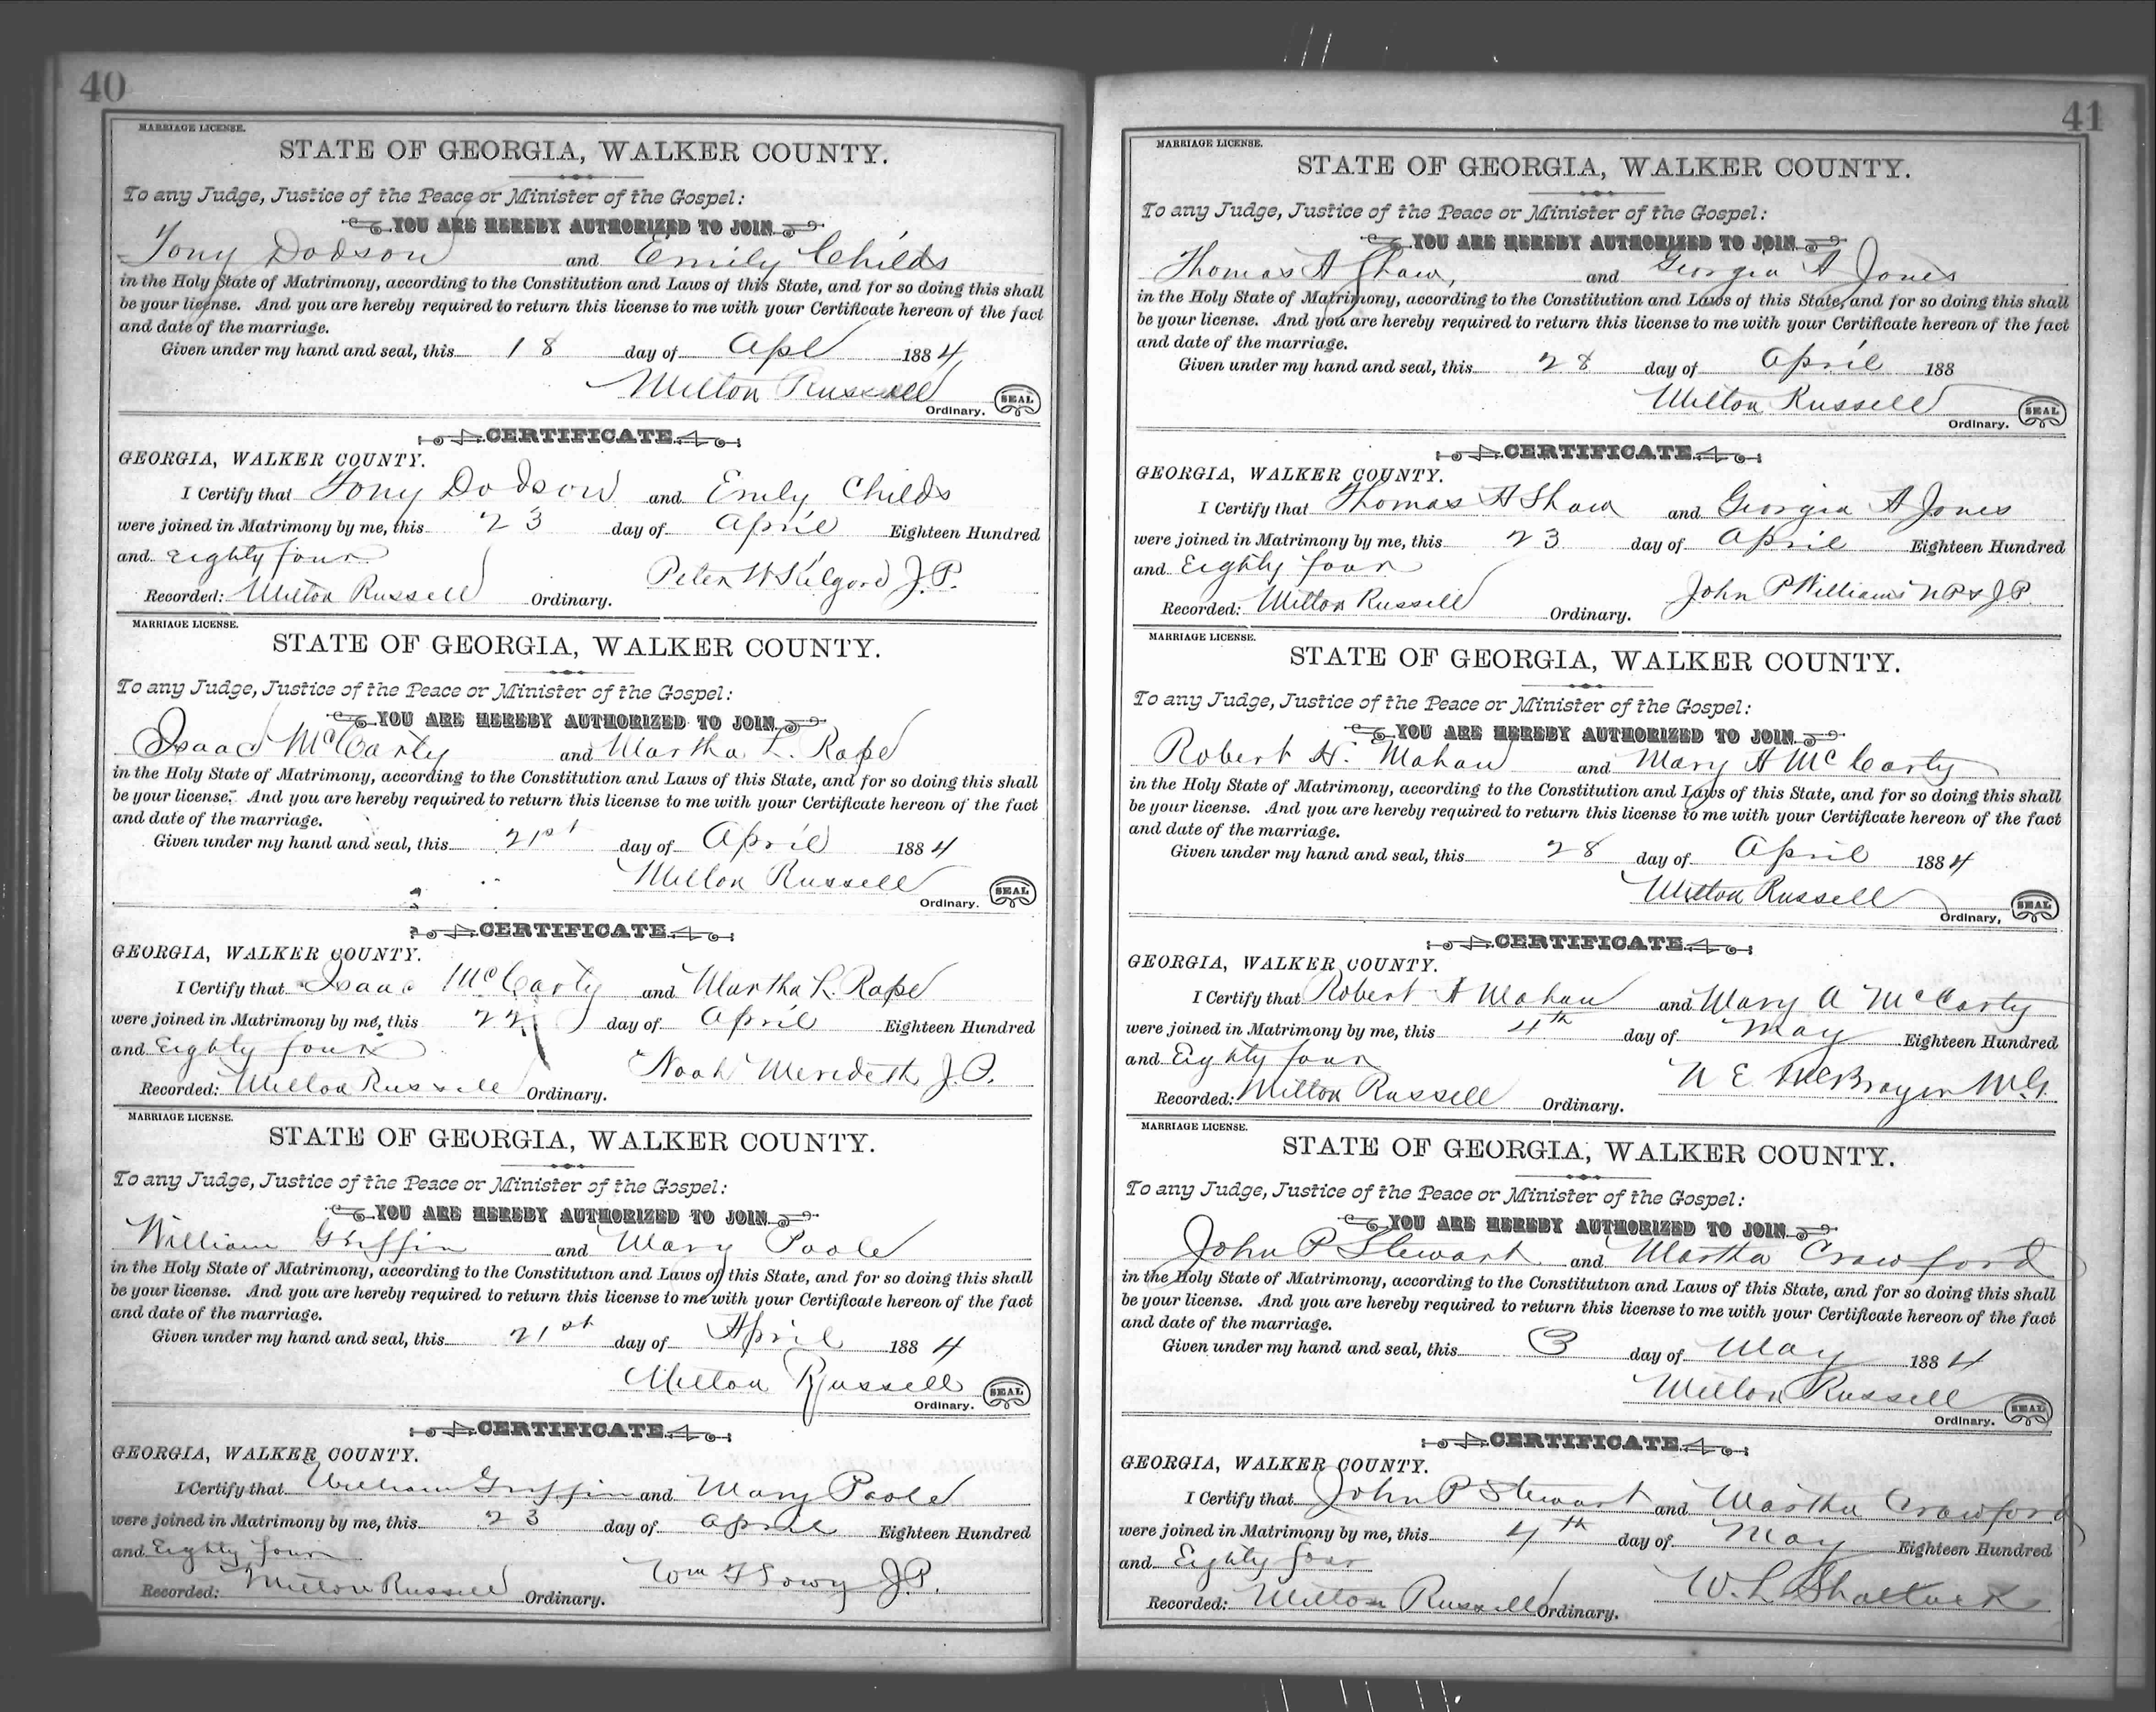 40
MARRIAGE LICENSE.
STATE OF GEORGIA, WALKER COUNTY.
To any Judge, Justice of the Peace or Minister of the Gospel:
YOU ARE HEREBY AUTHORIZED TO JOIN
Tony Dodson and Emily Childs
in the Holy State of Matrimony, according to the Constitution and Laws of this State, and for so doing this shall
be your license. And you are hereby required to return this license to me with your Certificate hereon of the fact
and date of the marriage.
Given under my hand and seal, this 18 day of Apl 1884
Milton Russell
Ordinary. SEAL
CERTIFICATE
GEORGIA, WALKER COUNTY.
I Certify that Tony Dodson and Emily Childs
were joined in Matrimony by me, this 23 day of April Eighteen Hundred
and Eighty four
Peter W Kilgore J.P.
Recorded: Milton Russell Ordinary.
MARRIAGE LICENSE.
STATE OF GEORGIA, WALKER COUNTY.
To any Judge, Justice of the Peace or Minister of the Gospel:
YOU ARE HEREBY AUTHORIZED TO JOIN
Isaac McCarty and Martha L. Rape
in the Holy State of Matrimony, according to the Constitution and Laws of this State, and for so doing this shall
be your license. And you are hereby required to return this license to me with your Certificate hereon of the fact
and date of the marriage.
Given under my hand and seal, this 21st day of April 1884
Milton Russell
Ordinary. SEAL
CERTIFICATE
GEORGIA, WALKER COUNTY.
I Certify that Isaac McCarty and Martha L. Rape
were joined in Matrimony by me, this 22 day of April Eighteen Hundred
and Eighty four
Noah Merideth J.P.
Recorded: Milton Russell Ordinary.
MARRIAGE LICENSE.
STATE OF GEORGIA, WALKER COUNTY.
To any Judge, Justice of the Peace or Minister of the Gospel:
YOU ARE HEREBY AUTHORIZED TO JOIN
William Griffin and Mary Poole
in the Holy State of Matrimony, according to the Constitution and Laws of this State, and for so doing this shall
be your license. And you are hereby required to return this license to me with your Certificate hereon of the fact
and date of the marriage.
Given under my hand and seal, this 21st day of April 1884
Milton Russell
Ordinary. SEAL
CERTIFICATE
GEORGIA, WALKER COUNTY.
I Certify that William Griffin and Mary Poole
were joined in Matrimony by me, this 23 day of April Eighteen Hundred
and Eighty four
Wm J.P.
Recorded: Milton Russell Ordinary.
41
MARRIAGE LICENSE.
STATE OF GEORGIA, WALKER COUNTY.
To any Judge, Justice of the Peace or Minister of the Gospel:
YOU ARE HEREBY AUTHORIZED TO JOIN
Thomas A Shaw, and Georgia A Jones
in the Holy State of Matrimony, according to the Constitution and Laws of this State, and for so doing this shall
be your license. And you are hereby required to return this license to me with your Certificate hereon of the fact
and date of the marriage.
Given under my hand and seal, this 28 day of April 188
Milton Russell
Ordinary. SEAL
CERTIFICATE
GEORGIA, WALKER COUNTY.
I Certify that Thomas A Shaw and Georgia A Jones
were joined in Matrimony by me, this 23 day of April Eighteen Hundred
and Eighty four
John P Williams NP & J.P.
Recorded: Milton Russell Ordinary.
MARRIAGE LICENSE.
STATE OF GEORGIA, WALKER COUNTY.
To any Judge, Justice of the Peace or Minister of the Gospel:
YOU ARE HEREBY AUTHORIZED TO JOIN
Robert H. Mahan and Mary A McCarty
in the Holy State of Matrimony, according to the Constitution and Laws of this State, and for so doing this shall
be your license. And you are hereby required to return this license to me with your Certificate hereon of the fact
and date of the marriage.
Given under my hand and seal, this 28 day of April 1884
Milton Russell
Ordinary, SEAL
CERTIFICATE
GEORGIA, WALKER COUNTY.
I Certify that Robert H Mahan and Mary A McCarty
were joined in Matrimony by me, this 4th day of May Eighteen Hundred
and Eighty four
N E McBrayer M.G.
Recorded: Milton Russell Ordinary.
MARRIAGE LICENSE.
STATE OF GEORGIA, WALKER COUNTY.
To any Judge, Justice of the Peace or Minister of the Gospel:
YOU ARE HEREBY AUTHORIZED TO JOIN
John P Stewart and Martha Crawford
in the Holy State of Matrimony, according to the Constitution and Laws of this State, and for so doing this shall
be your license. And you are hereby required to return this license to me with your Certificate hereon of the fact
and date of the marriage.
Given under my hand and seal, this 3 day of May 1884
Milton Russell
Ordinary. SEAL
CERTIFICATE
GEORGIA, WALKER COUNTY.
I Certify that John P Stewart and Martha Crawford
were joined in Matrimony by me, this 4th day of May Eighteen Hundred
and Eighty four
W. L Shattuck
Recorded: Milton Russell Ordinary.